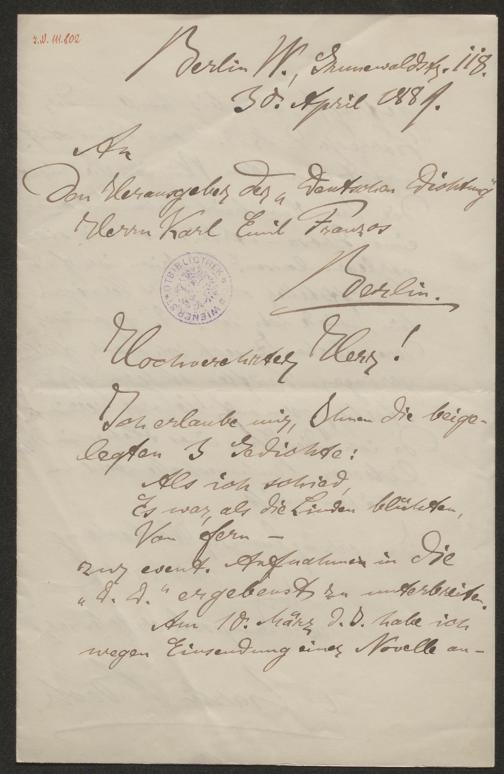 I.N. 111.802
Berlin W., Grunewaldstr. 118.
30. April 1889.
An
Den Herausgeber der „Deutschen Dichtung"
Herrn Karl Emil Franzos
Berlin.
WIENER STADTBIBLIOTHEK
Hochverehrter Herr!
Ich erlaube mir, Ihnen die beige-
legten 3 Gedichte:
Als ich schied,
Es war, als die Linden blühten,
Von fern —
zur event. Aufnahme in die
„D. D." ergebenst zu unterbreiten.
Am 10. März d. J. habe ich
wegen Einsendung einer Novelle an-